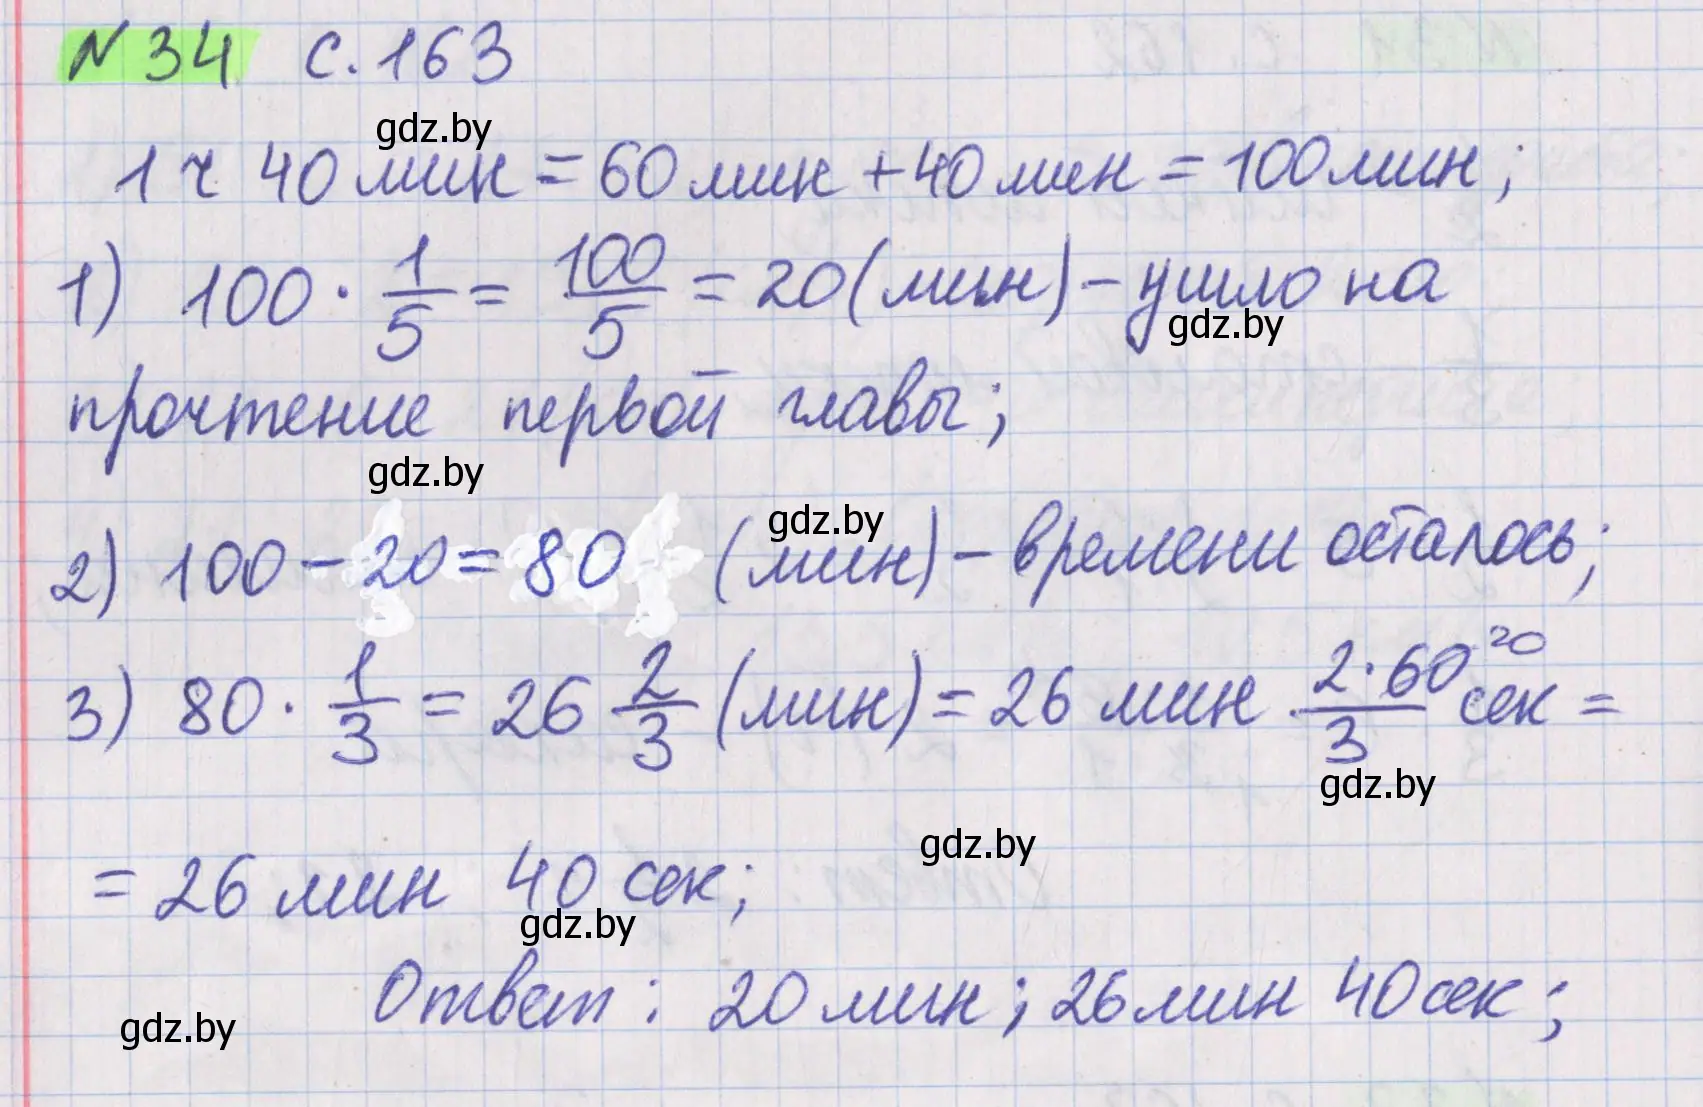 № 34 с. 163
gdz.by
1 ч 40 мин = 60 мин + 40 мин = 100 мин;
1) 100 · 1/5 = 100/5 = 20 (мин) – ушло на
gdz.by
прочтение первой главы;
gdz.by
gdz.by
2) 100 – 20 = 80 (мин) – времени осталось;
3) 80 · 1/3 = 26 2/3 (мин) = 26 мин 2·60 20/3 сек =
gdz.by
gdz.by
= 26 мин 40 сек;
gdz.by
Ответ: 20 мин; 26 мин 40 сек;
gdz.by